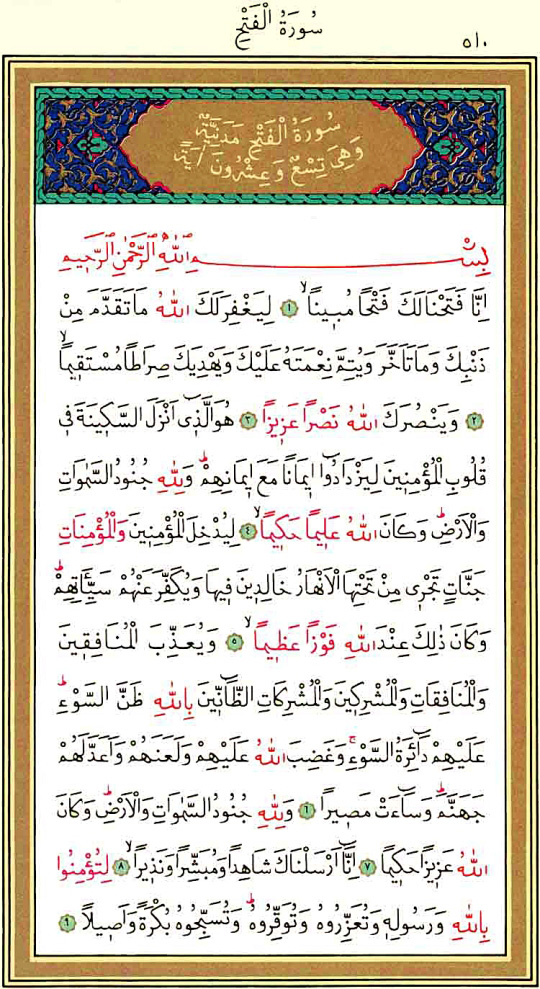 سُورَةُ الْفَتْحِ
٥١٠
سُورَةُ الْفَتْحِ مَدَنِيَّةٌ
وَهِيَ تِسْعٌ وَعِشْرُونَ اٰيَةً
بِسْمِ اللّٰهِ الرَّحْمٰنِ الرَّحِيمِ
اِنَّا فَتَحْنَا لَكَ فَتْحًا مُبِينًا ﴿١﴾ لِيَغْفِرَ لَكَ اللّٰهُ مَا تَقَدَّمَ مِنْ
ذَنْبِكَ وَمَا تَاَخَّرَ وَيُتِمَّ نِعْمَتَهُ عَلَيْكَ وَيَهْدِيَكَ صِرَاطًا مُسْتَقِيمًا
﴿٢﴾ وَيَنْصُرَكَ اللّٰهُ نَصْرًا عَزِيزًا ﴿٣﴾ هُوَ الَّذِٓي اَنْزَلَ السَّكِينَةَ فِي
قُلُوبِ الْمُؤْمِنِينَ لِيَزْدَادُٓوا اِيمَانًا مَعَ اِيمَانِهِمْ وَلِلّٰهِ جُنُودُ السَّمٰوَاتِ
وَالْاَرْضِ وَكَانَ اللّٰهُ عَلِيمًا حَكِيمًا ﴿٤﴾ لِيُدْخِلَ الْمُؤْمِنِينَ وَالْمُؤْمِنَاتِ
جَنَّاتٍ تَجْرِي مِنْ تَحْتِهَا الْاَنْهَارُ خَالِدِينَ فِيهَا وَيُكَفِّرَ عَنْهُمْ سَيِّـَٔاتِهِمْ
وَكَانَ ذٰلِكَ عِنْدَ اللّٰهِ فَوْزًا عَظِيمًا ﴿٥﴾ وَيُعَذِّبَ الْمُنَافِقِينَ
وَالْمُنَافِقَاتِ وَالْمُشْرِكِينَ وَالْمُشْرِكَاتِ الظَّٓانِّينَ بِاللّٰهِ ظَنَّ السَّوْءِ
عَلَيْهِمْ دَٓائِرَةُ السَّوْءِ وَغَضِبَ اللّٰهُ عَلَيْهِمْ وَلَعَنَهُمْ وَاَعَدَّ لَهُمْ
جَهَنَّمَ وَسَٓاءَتْ مَصِيرًا ﴿٦﴾ وَلِلّٰهِ جُنُودُ السَّمٰوَاتِ وَالْاَرْضِ وَكَانَ
اللّٰهُ عَزِيزًا حَكِيمًا ﴿٧﴾ اِنَّٓا اَرْسَلْنَاكَ شَاهِدًا وَمُبَشِّرًا وَنَذِيرًا ﴿٨﴾ لِتُؤْمِنُوا
بِاللّٰهِ وَرَسُولِهِ وَتُعَزِّرُوهُ وَتُوَقِّرُوهُ وَتُسَبِّحُوهُ بُكْرَةً وَاَصِيلًا ﴿٩﴾